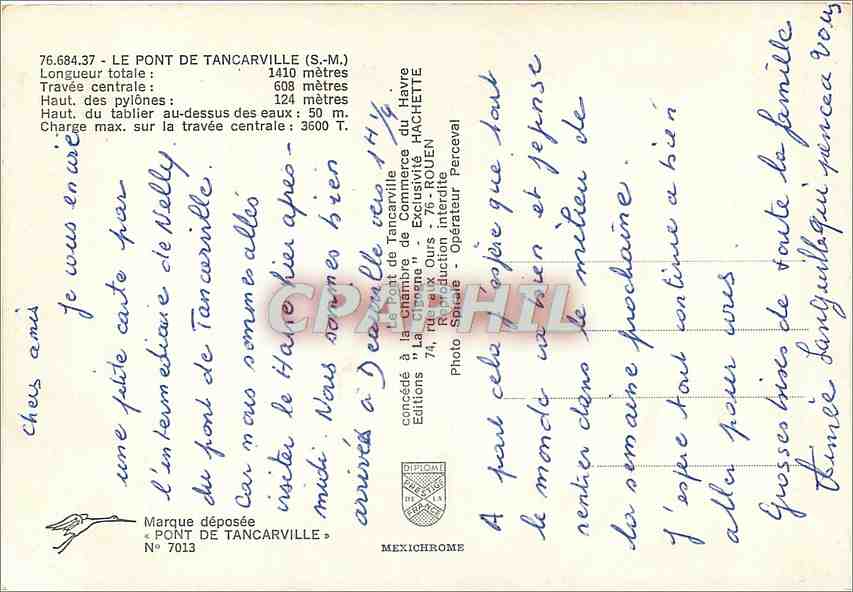 76.684.37 - LE PONT DE TANCARVILLE (S.-M.)
Longueur totale : 1410 mètres
Travée centrale : 608 mètres
Haut. des pylônes : 124 mètres
Haut. du tablier au-dessus des eaux : 50 m.
Charge max. sur la travée centrale : 3600 T.
Chers amis
Je vous envoie
une petite carte par
l'intermédiaire de Nelly
du pont de Tancarville.
Car nous sommes allés
visiter le Havre hier après-
midi. Nous sommes bien
arrivés à Deauville vers 14 1/4
Le Pont de Tancarville
concédé à la Chambre de Commerce du Havre
Editions "La Cigogne" - Exclusivité HACHETTE
74, rue aux Ours - 76 - ROUEN
Reproduction interdite
Photo Spirale - Opérateur Perceval
A part cela j'espère que tout
le monde va bien et je pense
rentrer dans le milieu de
la semaine prochaine.
J'espère tout continue a bien
aller pour vous.
Grosses bises de toute la famille
Languille qui pense a vous
DIPLOME
PRESTIGE
DE LA
FRANCE
MEXICHROME
Marque déposée
« PONT DE TANCARVILLE »
N° 7013
CPAPHIL